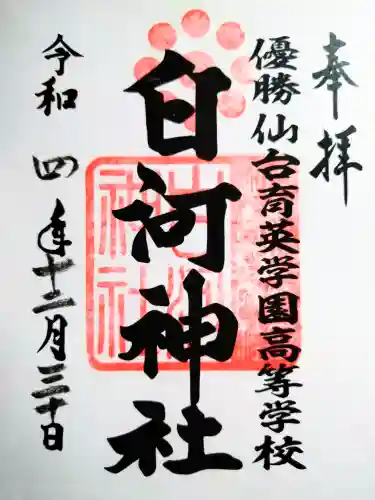 奉拝
優勝仙台育英学園高等学校
白河神社
令和四年十二月三十日